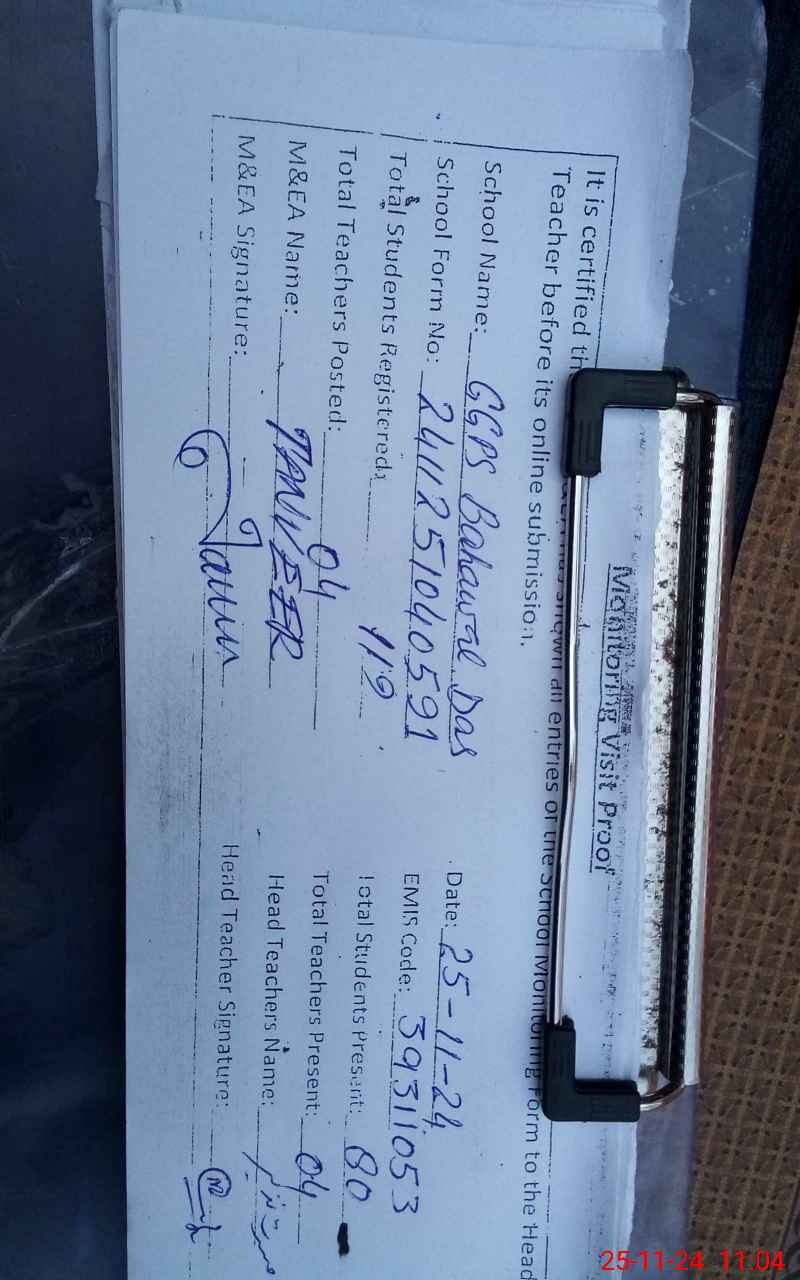 Monitoring Visit Proof
It is certified th shown all entries of the School Monitoring Form to the Head
Teacher before its online submission.
School Name: GGPS Bahawal Das Date: 25-11-24
School Form No: 2411251040591 EMIS Code: 39311053
Total Students Registered: 119 Total Students Present: 80
Total Teachers Posted: 04 Total Teachers Present: 04
M&EA Name: TANVEER Head Teachers Name:
M&EA Signature: Head Teacher Signature:
25-11-24 11:04